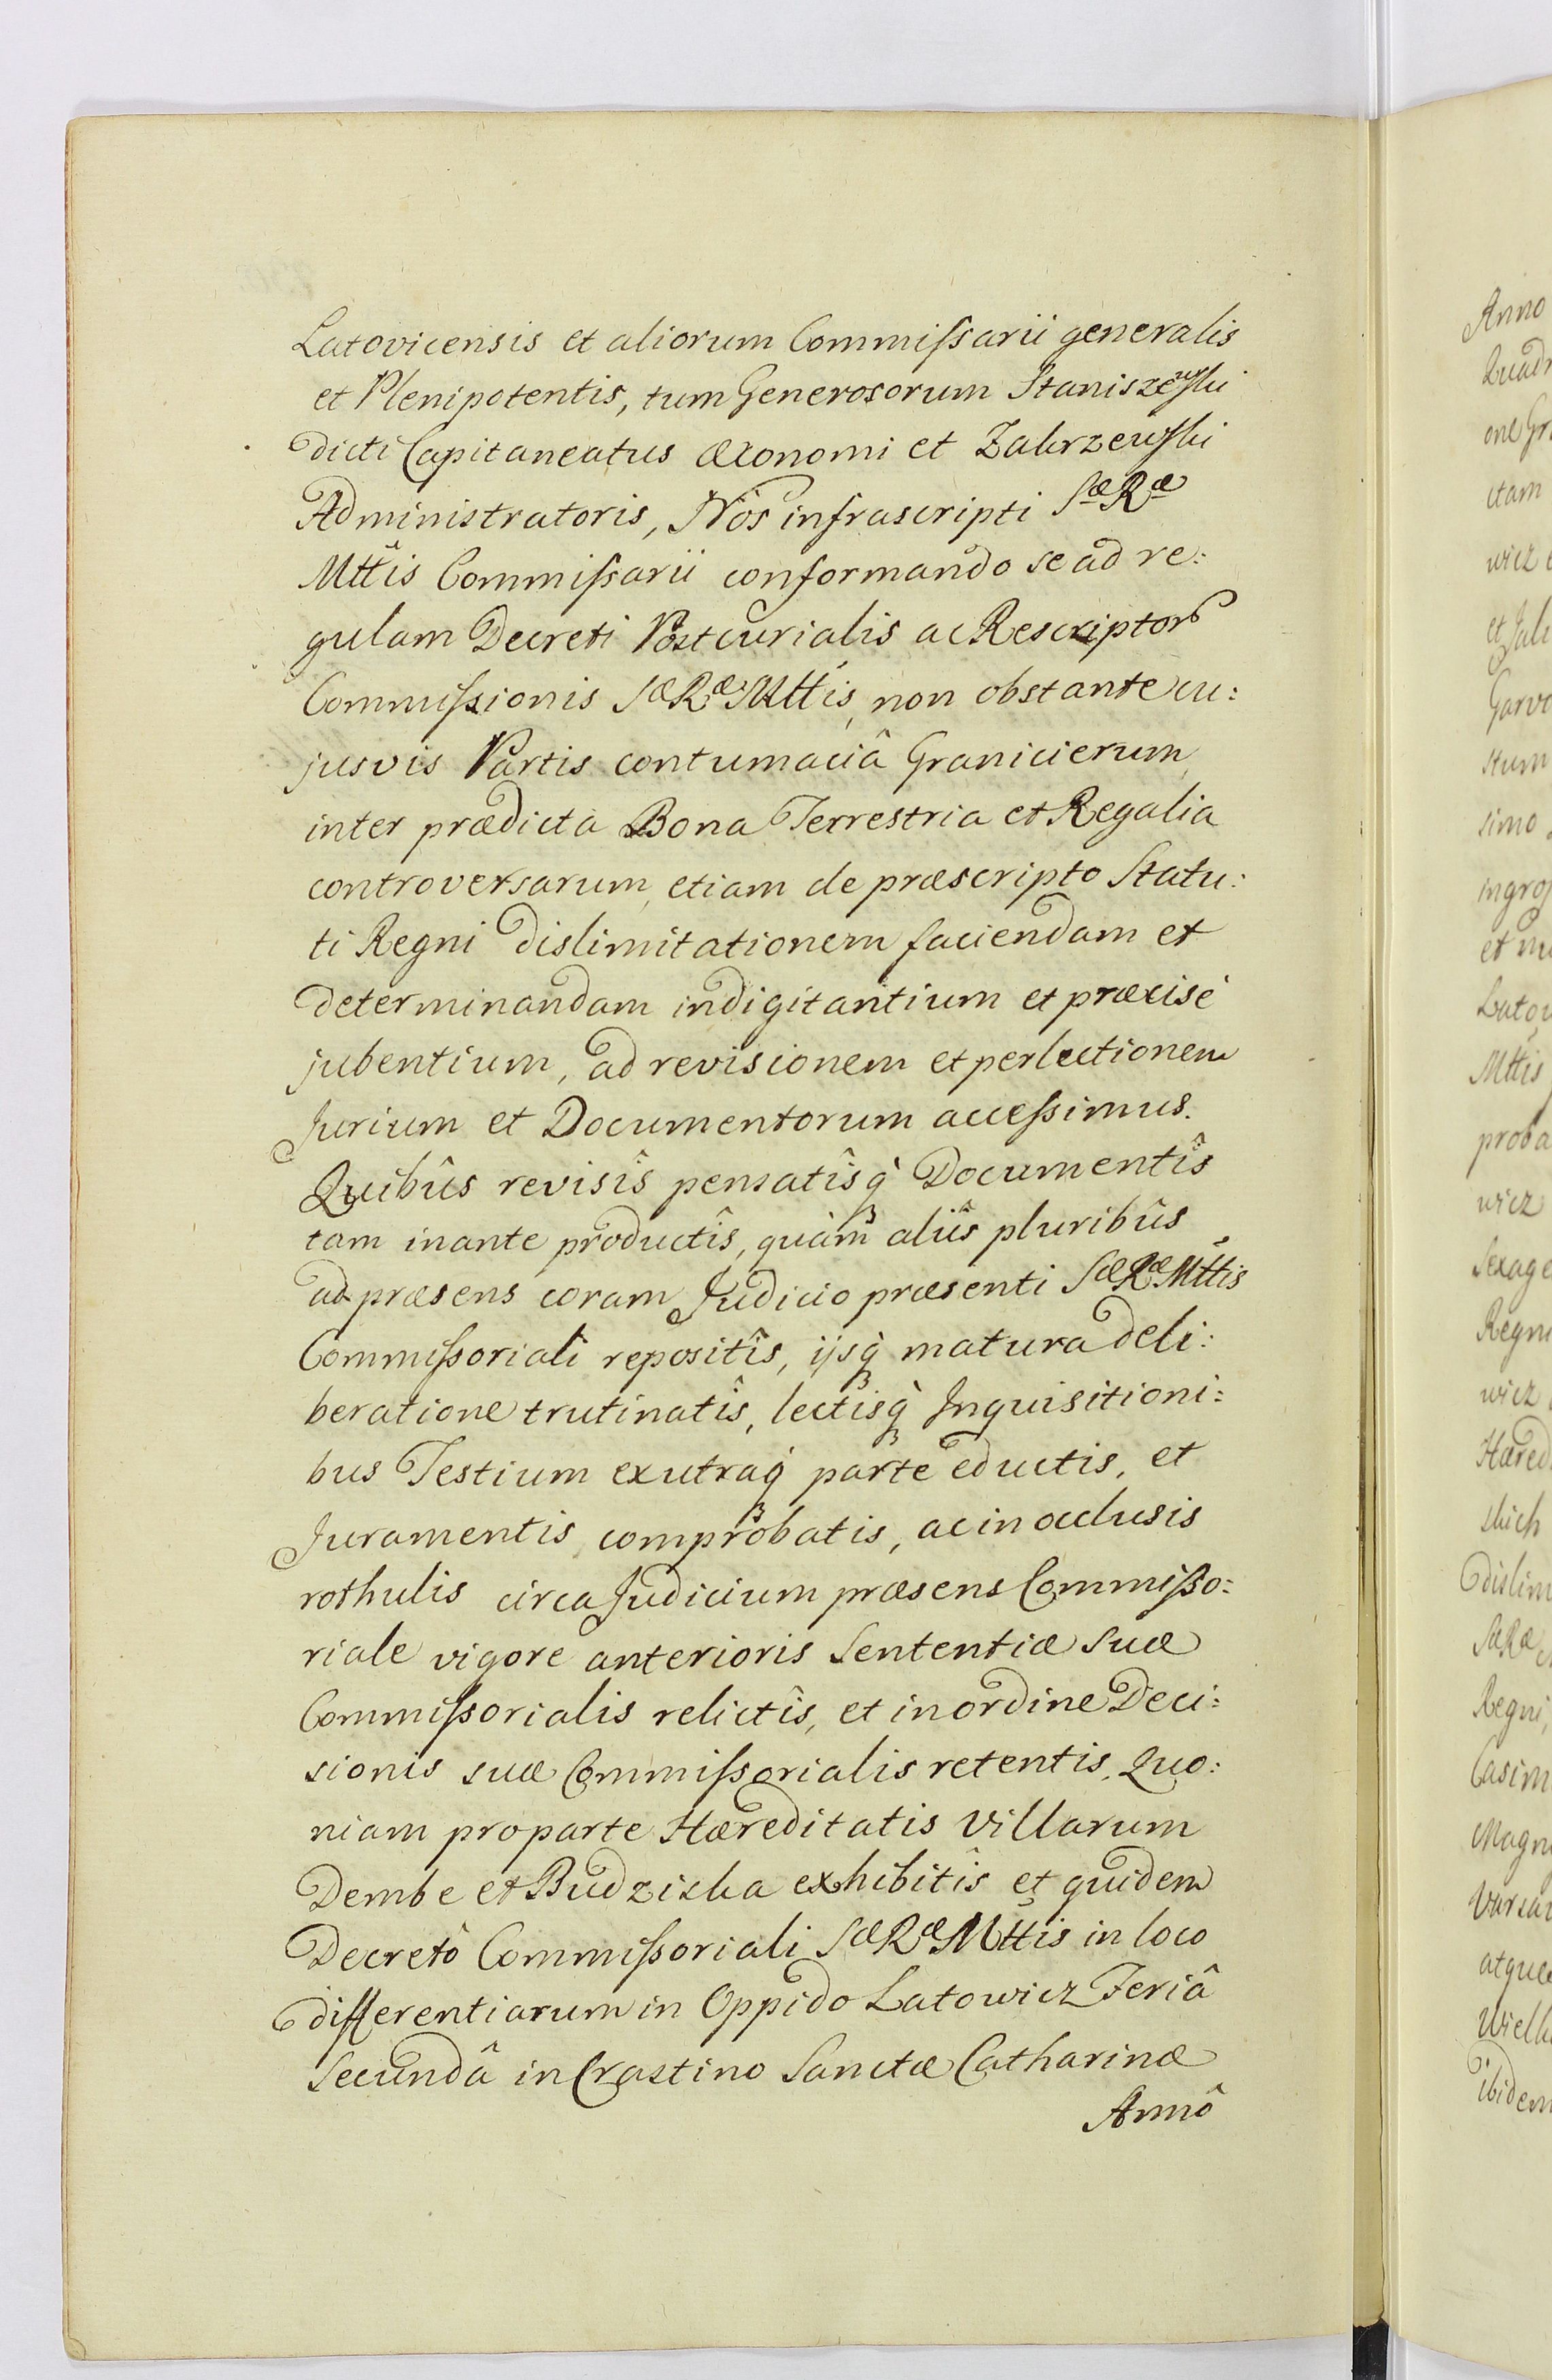 Latovicensis et aliorum Commiſsarii generalis
et Plenipotentis, tum Generosorum Staniszewſki
dicti Capitaneatus Œconomi et Zakrzewſki
Administratoris, Nos infrascripti Sæ Ræ
Mttis Commiſsarii conformando se ad re:
gulam Decreti Postcurialis ac Rescriptor
Commiſsionis Sæ Ræ Mttis, non obstante cu:
jusvis Partis contumaciâ Granicierum
inter prædicta Bona Terrestria et Regalia
controversarum, etiam de præscripto Statu:
ti Regni dislimitationem faciendam et
determinandam indigitantium et præcisè
jubentium, ad revisionem et perlectionem
Jurium et Documentorum acceſsimus.
Quibûs revisîs pensatîsq́ Documentîs
tam in ante productîs, quàm aliîs pluribûs
ad præsens coram Judicio præsenti Sæ Ræ Mttis
Commiſsoriali repositîs, ijsq́ matura deli:
beratione trutinatîs, lectisq́ Inquisitioni:
bus Testium ex utraq́ parte eductis, et
Juramentis comprobatis, ac in occlusis
rothulis circa Judicium præsens Commiſso:
riale vigore anterioris Sententiæ suæ
Commiſsorialis relictîs, et in ordine Deci:
sionis suæ Commiſsorialis retentis, Quo:
niam pro parte Hæreditatis Villarum
Dembe et Budziska exhibitîs et quidem
Decretô Commiſsoriali Sæ Ræ Mttis in loco
differentiarum in Oppido Latowicz Feriâ
Secundâ in Crastino Sanctæ Catharinæ
Annô
Anno
etam
Garvo
simo
et
Latow
Mttis
proba
wicz
Sexage
Regni
wicz
Hæred
dislim
Sæ Ræ
Regni,
Casim
Magn
Varsa
atque
Wielk
ibidem